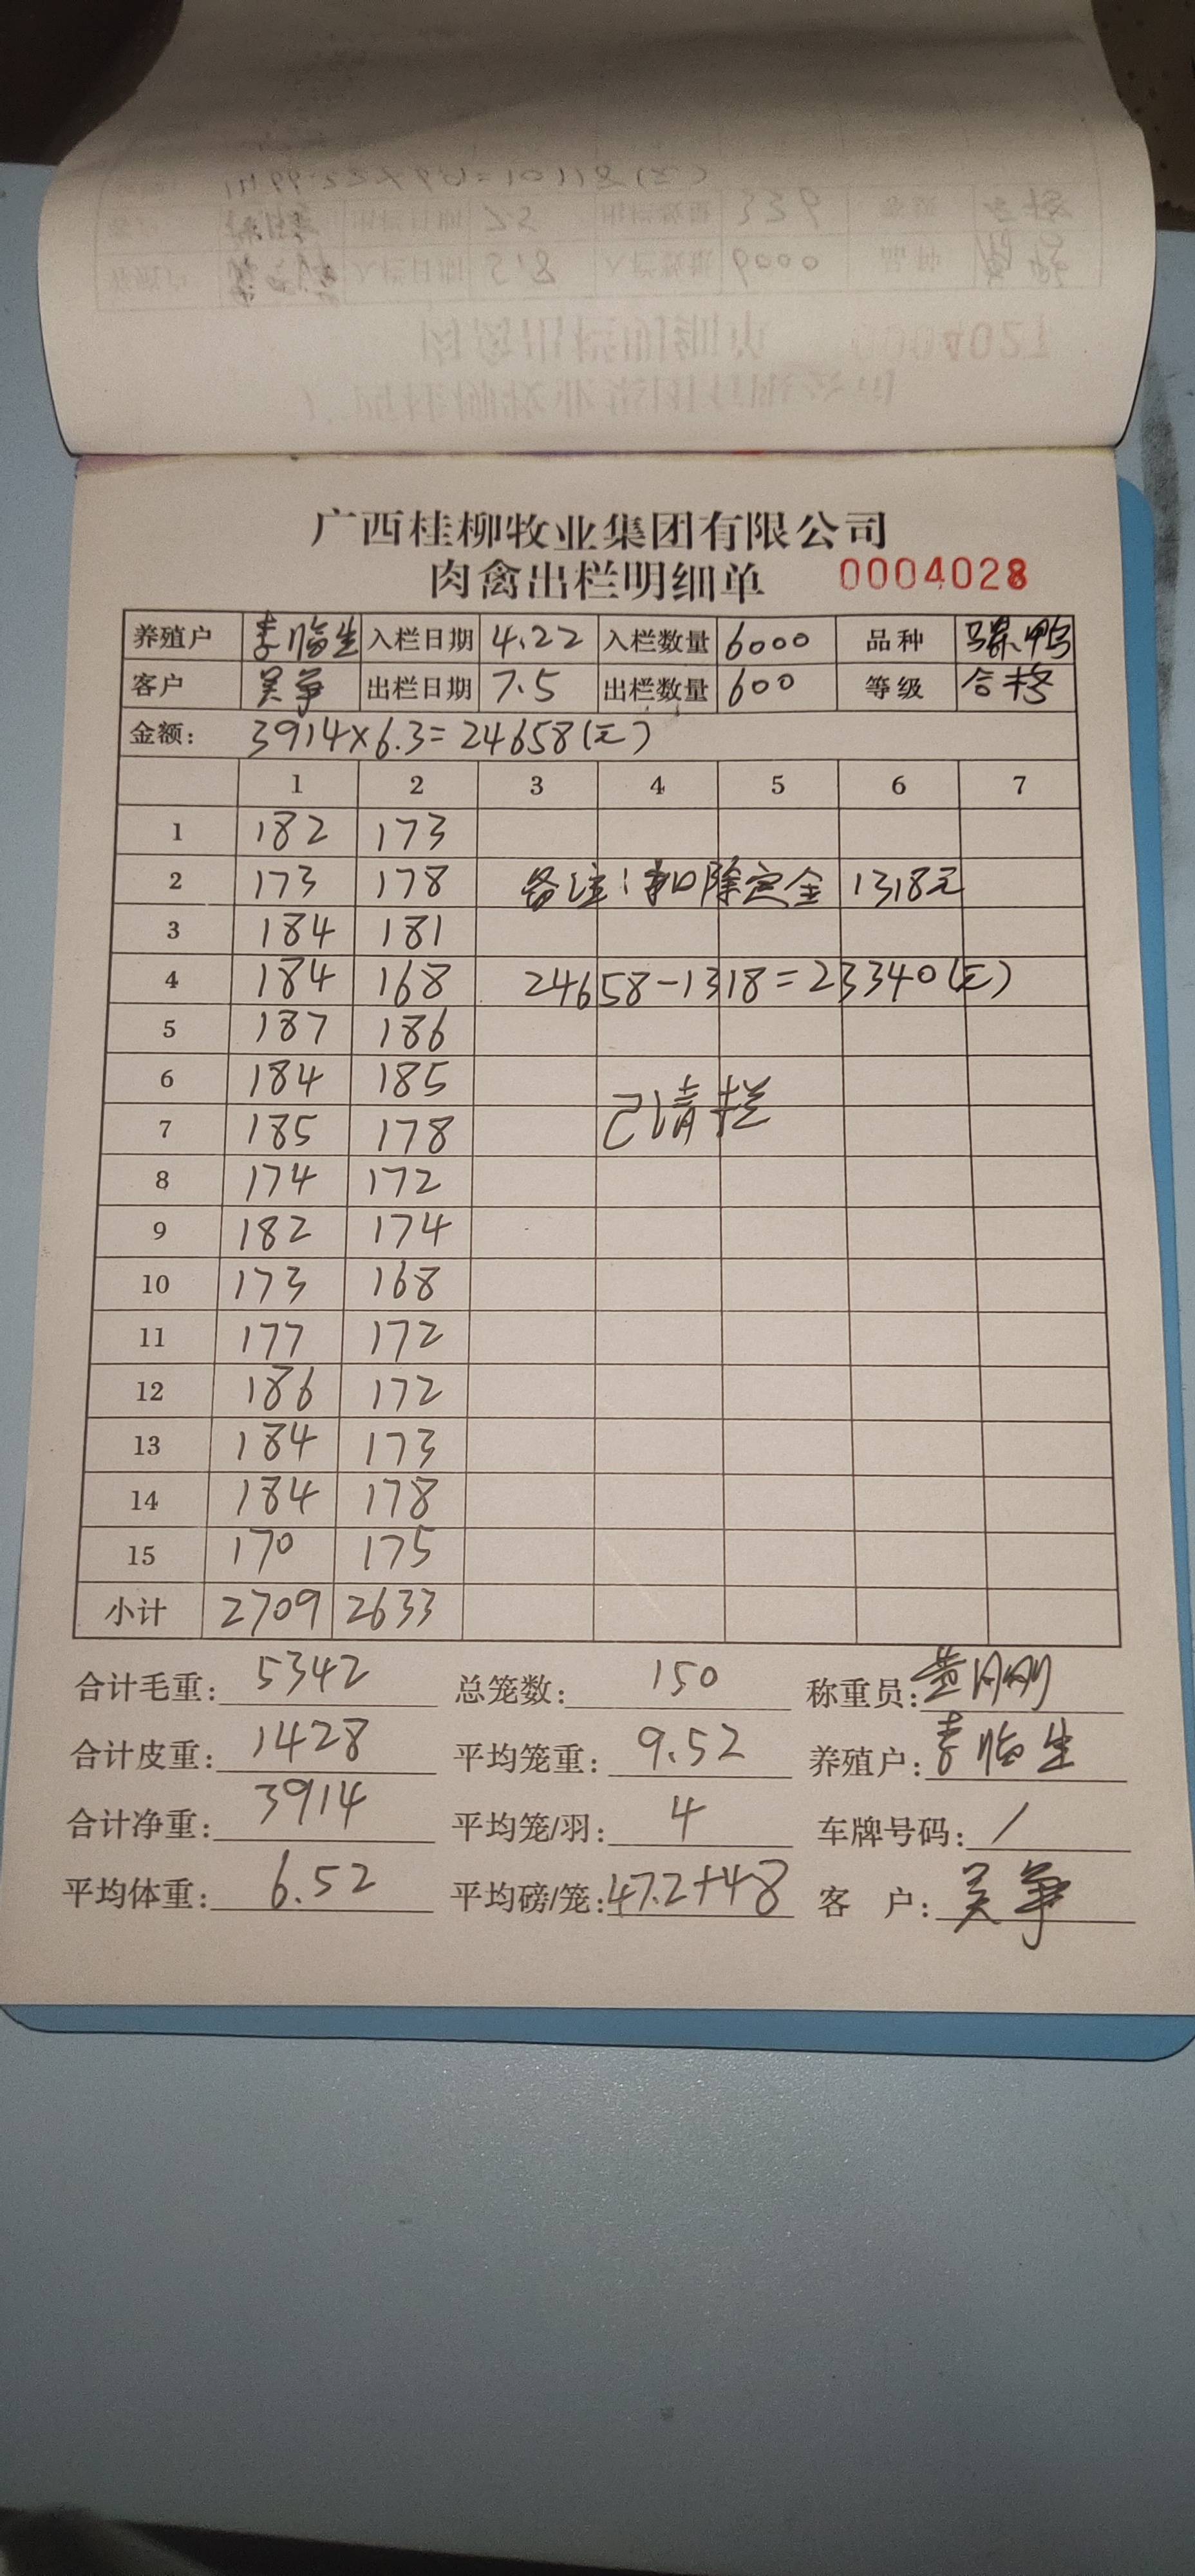 广西桂柳牧业集团有限公司
肉禽出栏明细单 0004028
养殖户 李临生 入栏日期 4.22 入栏数量 6000 品种 鸭
客户 吴争 出栏日期 7.5 出栏数量 600 等级 合格
金额: 3914×6.3=24658(元)
1 2 3 4 5 6 7
1 182 173
2 173 178 备注:扣除定金 1318元
3 184 181
4 184 168 24658-1318=23340(元)
5 187 186
6 184 185
7 185 178 已清栏
8 174 172
9 182 174
10 173 168
11 177 172
12 186 172
13 184 173
14 184 178
15 170 175
小计 2709 2633
合计毛重: 5342 总笼数: 150 称重员: 黄刚刚
合计皮重: 1428 平均笼重: 9.52 养殖户: 李临生
合计净重: 3914 平均笼/羽: 4 车牌号码: /
平均体重: 6.52 平均磅/笼: 47.2+48 客 户: 吴争